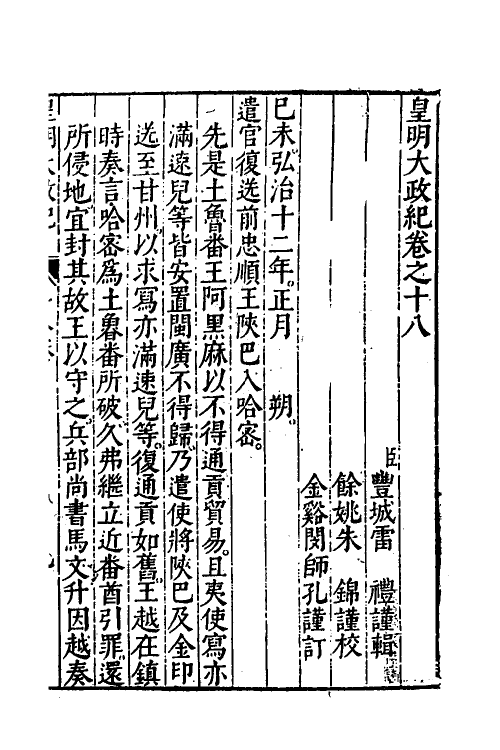 皇明大政紀卷之十八
臣豐城雷　禮謹輯
餘姚朱　錦謹校
金谿閔師孔謹訂
己未弘治十二年正月　朔。
遣官復送前忠順王陝巴入哈密。
先是土魯番王阿黑麻以不得通貢貿易。且夷使寫亦
滿速兒等皆安置閩廣不得歸乃遣使將陝巴及金印
送至甘州以求寫亦滿速兒等。復通貢如舊。王越在鎮
時奏言哈密爲土魯番所破久弗繼立近番酋引罪還
所侵地宜封其故王以守之兵部尚書馬文升因越奏
皇明大政紀